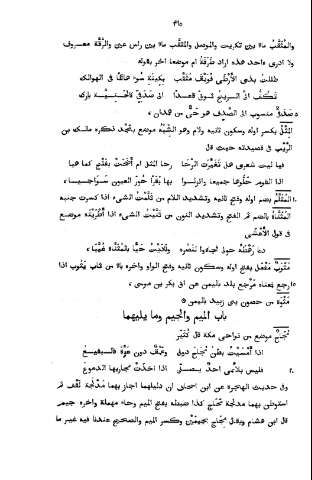 ٤١٥
والمُثَقَّب ماء بين تكريت والموصل والمثقّب ماء بين راس عين والرَّقَّة معروف
ولا ادرى واحد هذه اراد طَرَفَةُ ام موضعا اخر بقوله
ظللت بذى الأَرْطَى فُوَيْق مثقّب بكِينَة سوء هالكا فى الهوالك
تَكُفّ الىّ الريح ثوبى قاعدًا الى صَدَفىّ كالحَنيّة بارك
صدفىّ منسوب الى الصَّدِف هو حىّ من همدان،
المِثْل بكسر اوله وسكون ثانيه ولام وهو الشِّبْه موضع بنَجْد ذكره مالك بن
الرَّيْب فى قصيدته حيث قال
فيا ليت شعرى هل تَغَيَّرَت الرَّحَا رحا المثل ام أَضْحَتْ بفَلْج كما هيا
اذا القوم حَلُّوها جميعا وانزلوا بها بَقَرًا حُورَ العيون سَوَاجِيا،
المُثَلَّم بضم اوله وفتح ثانيه وتشديد اللام من ثَلَّمْتُ الشىء اذا كسرت جنبه
المُثَنَّاة بالضم ثم الفتح وتشديد النون من ثنّيت الشىء اذا أَطْرَيْتَه موضع
فى قول الأَعْشَى
دعا رَهْطَهُ حولى فجاءوا لنَصْره وناديتُ حيًّا بالمُثَنَّاة غُيَّبا،
مَثُوبٌ مَفْعَل بفتح اوله وسكون ثانيه وفتح الواو واخره باء من ثاب يثوب اذا
١٥ رجع فمعناه مَرْجع بلد باليمن عن ابى بكر بن موسى،
مَثْوَة من حصون بنى زبيد باليمن
باب الميم والجيم وما يليهما
مُجَاج موضع من نواحى مكة قال كُثَيّر
اذا أَمْسَيْتُ بطن مُجَاح دونى وعَمْق دون عَزَّة فالبقيع
٢٠ فليس بلائمى احد يصلّى اذا اخذت مجاريها الدموع
وفى حديث الهجرة عن ابن اسحاق ان دليلهما اجاز بهما مَدْلَجَة لَقْف ثم
استبطن بهما مدلجة مجاح كذا ضبطه بفتح الميم وحاء مهملة واخره جيم
قال ابن هشام ويقال مِجَاج بجيمين وكسر الميم والصحيح عندنا فيه غير ما